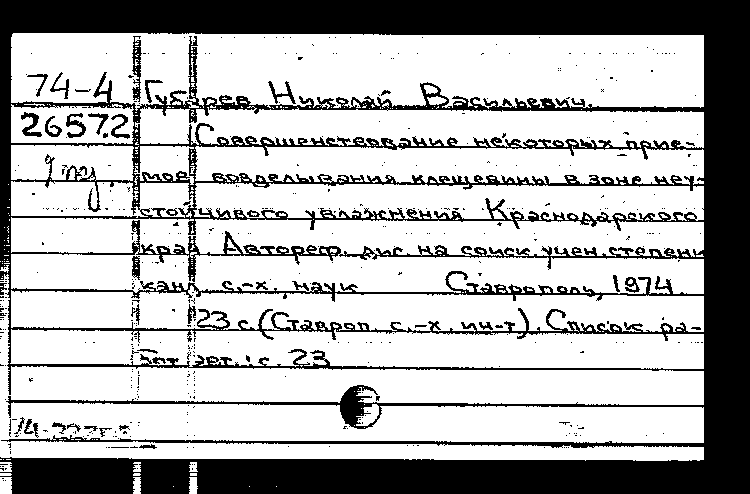 74-4
26572
Губарев, Николай Васильевич.
Совершенствование некоторых прие-
мов возделывания клещевины в зоне неу-
стойчивого увлажнения Краснодарского
края. Автореф. дис. на соиск. учен. степени
канд. с.-х. наук Ставрополь, 1974.
23 с. (Ставроп. с.-х. ин-т). Список ра-
бот авт.: с. 23